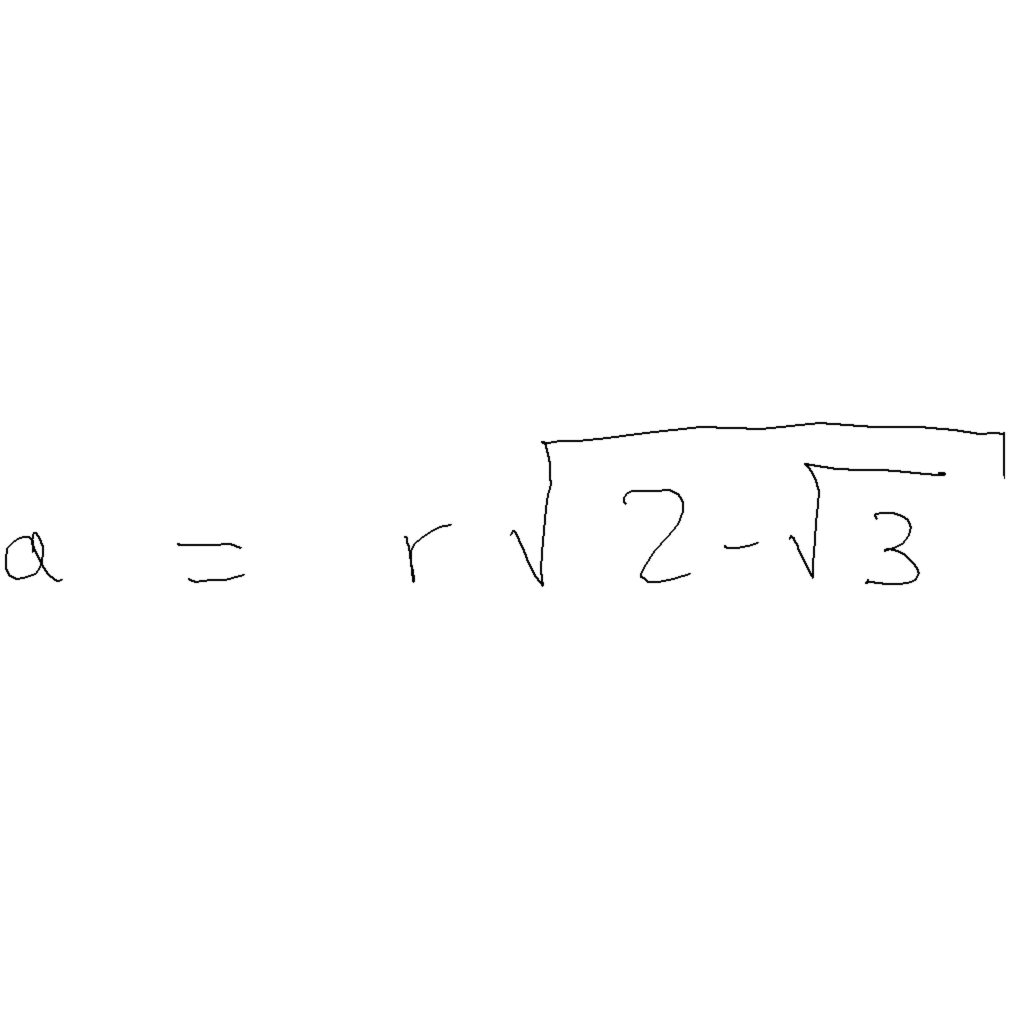 a = r√(2-√3)